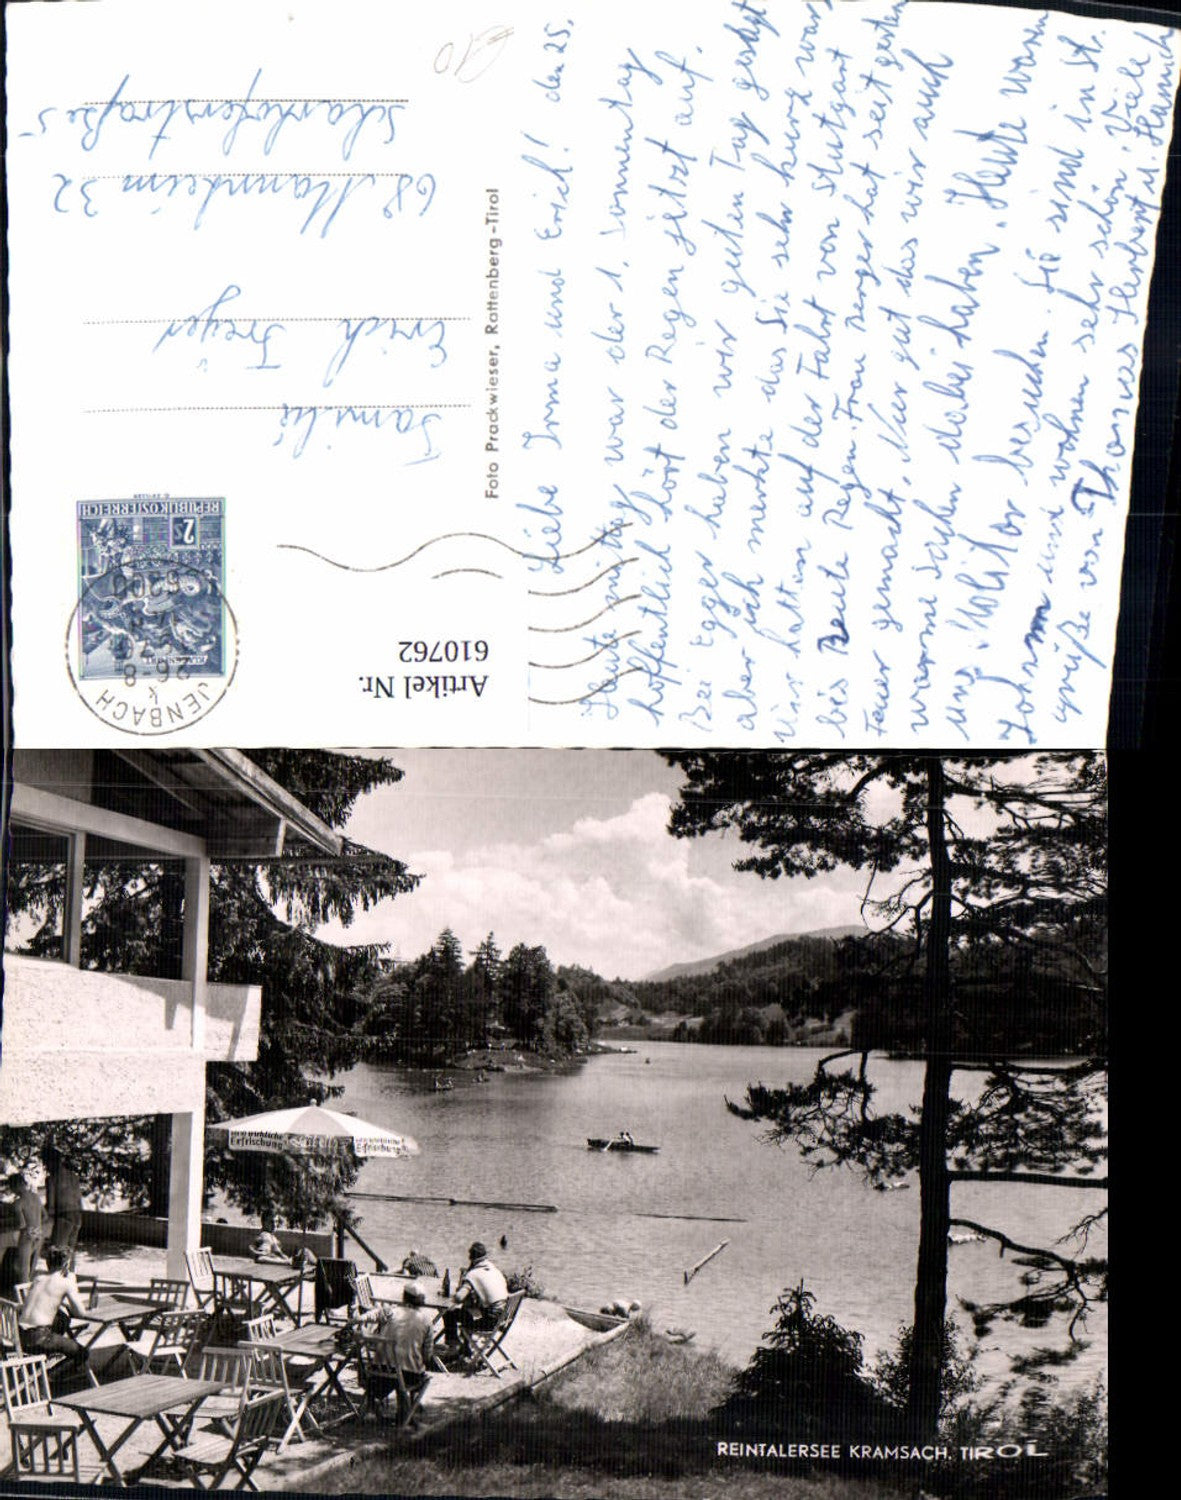 Liebe Irma und Erich! den 25.
Heute mittag war der 1. Sonnentag
hoffentlich hört der Regen jetzt auf.
Bei Egger haben wir guten Tag gesagt
aber ich merkte das Sie sehr kurz war
Wir hatten auf der Fahrt von Stutgart
bis Heute Regen. Frau Berger hat seit gestern
Feuer gemacht. Nur gut das wir auch
warme Sachen dabei haben. Heute waren
uns Molitor besuchen. Sie sind in St.
Johann und wohnen sehr schön. Viele
grüße von Thomas Herbert u. Hannch
Foto Prackwieser, Rattenberg-Tirol
Familie
Erich Freyer
68 Mannheim 32
Scharhoferstraße 5
REPUBLIK ÖSTERREICH
2 S
JENBACH
6200
26-8
Artikel Nr.
610762
€10
Erfrischung
Erfrischung
REINTALERSEE KRAMSACH, TIROL